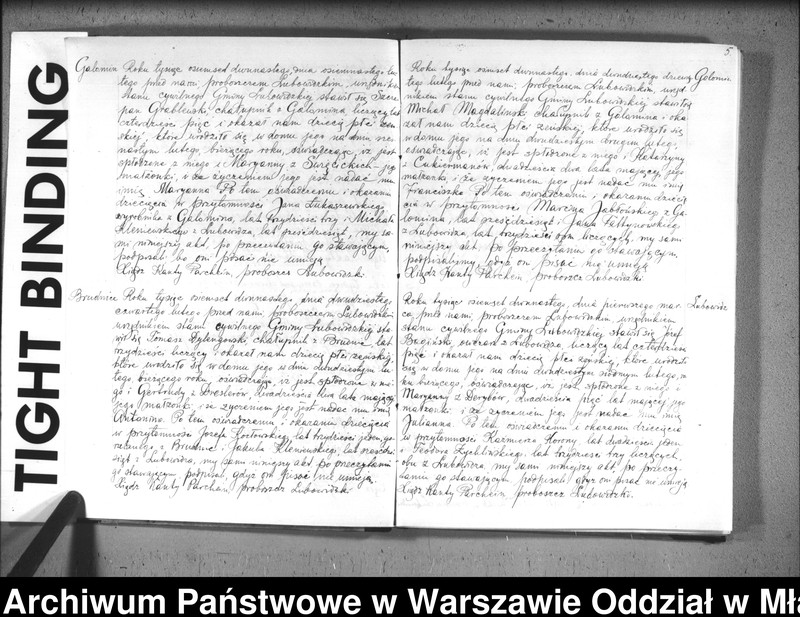 TIGHT BINDING
Galomin Roku tysiąc osiemset dwunastego, dnia osiemnastego lu-
tego przed nami, proboszczem Lubowidzkim, urzędnikiem
stanu cywilnego Gminy Lubowidzkiej stawił się Szcze-
pan Grabliński, chałupnik z Galumina liczący lat
czterdzieści pięć i okazał nam dziecię płci żeń-
skiej, które urodziło się w domu jego na dniu
lutego, bieżącego roku, oświadczając, iż jest
spłodzone z niego i Maryanny z jego
małżonki, i że życzeniem jego jest nadać mu
imię Maryanna. Po tem oświadczeniu i okazaniu
dziecięcia w przytomności Jana Łukaszewskiego,
wyrobnika z Galumina, lat trzydzieści trzy i Michała
Klemiewskiego z Lubowidza, lat sześćdziesiąt, my sa-
mi niniejszy akt, po przeczytaniu go stawającym,
podpisali bo oni pisać nie umieją.
Ksiądz Kanty Parchem, proboszcz Lubowidzki
Brudnice Roku tysiąc osiemset dwunastego, dnia dwudziestego
czwartego lutego przed nami proboszczem Lubowidzkim,
urzędnikiem stanu cywilnego Gminy Lubowidzkiej sta-
wił się Tomasz chałupnik z Brudnic, lat
trzydzieści liczący i okazał nam dziecię płci żeńskiej,
które urodziło się w domu jego w dniu dwudziestym lu-
tego, bieżącego roku, oświadczając, iż jest spłodzone z nie-
go i Gertrudy z Dreslerów, dwadzieścia dwa lata mającej
jego małżonki i że życzeniem jego jest nadać mu imię
Antonina. Po tem oświadczeniu i okazaniu dziecięcia
w przytomności Józefa Kozłowskiego, lat trzydzieści jeden,
z Brudnic i Jakuba Klemiewskiego, lat
z Lubowidza, my sami niniejszy akt po przeczytaniu
go stawającym podpisali, gdyż oni pisać nie umieją.
Ksiądz Kanty Parchem, proboszcz Lubowidzki
5
Roku tysiąc osiemset dwunastego, dnia dwudziestego dziewią- Galomin
tego lutego przed nami, proboszczem Lubowidzkim, urzęd-
nikiem stanu cywilnego Gminy Lubowidzkiej stawił się
Michał Magdaliński chałupnik z Galomina i oka-
zał nam dziecię płci żeńskiej, które urodziło się
w domu jego na dniu dwudziestym drugim lutego,
oświadczając, iż jest spłodzone z niego i Katarzyny
z Cukiermanów, dwadzieścia dwa lata mającej, jego
małżonki i że życzeniem jego jest nadać mu imię
Franciszka. Po tem oświadczeniu i okazaniu dziecię-
cia w przytomności Marcina Jabłońskiego z Ga-
lomina, lat sześćdziesiąt i Jana
z Lubowidza, lat trzydzieści ośm liczących, my sami
niniejszy akt, po przeczytaniu go stawającym,
podpisaliśmy, gdyż oni pisać nie umieją.
Ksiądz Kanty Parchem, proboszcz Lubowidzki
Roku tysiąc osiemset dwunastego, dnia pierwszego mar- Lubowidz
ca, przed nami, proboszczem Lubowidzkim, urzędnikiem
stanu cywilnego Gminy Lubowidzkiej stawił się Józef
z Lubowidza, liczący lat czterdzieści
pięć i okazał nam dziecię płci żeńskiej, które urodziło
się w domu jego na dniu dwudziestym siódmym lutego, ro-
ku bieżącego, oświadczając, iż jest spłodzone z niego i
Maryanny z dwadzieścia pięć lat mającej jego
małżonki i że życzeniem jego jest nadać mu imię
Julianna. Po tem oświadczeniu i okazaniu dziecięcia
w przytomności Kazimierza Korony, lat dwadzieścia jeden
i Teodora Zychlińskiego, lat trzydzieści trzy liczących,
obu z Lubowidza, my sami niniejszy akt, po przeczy-
taniu go stawającym podpisali gdyż oni pisać nie umieją.
Ksiądz Kanty Parchem, proboszcz Lubowidzki.
Archiwum Państwowe w Warszawie Oddział w Mła